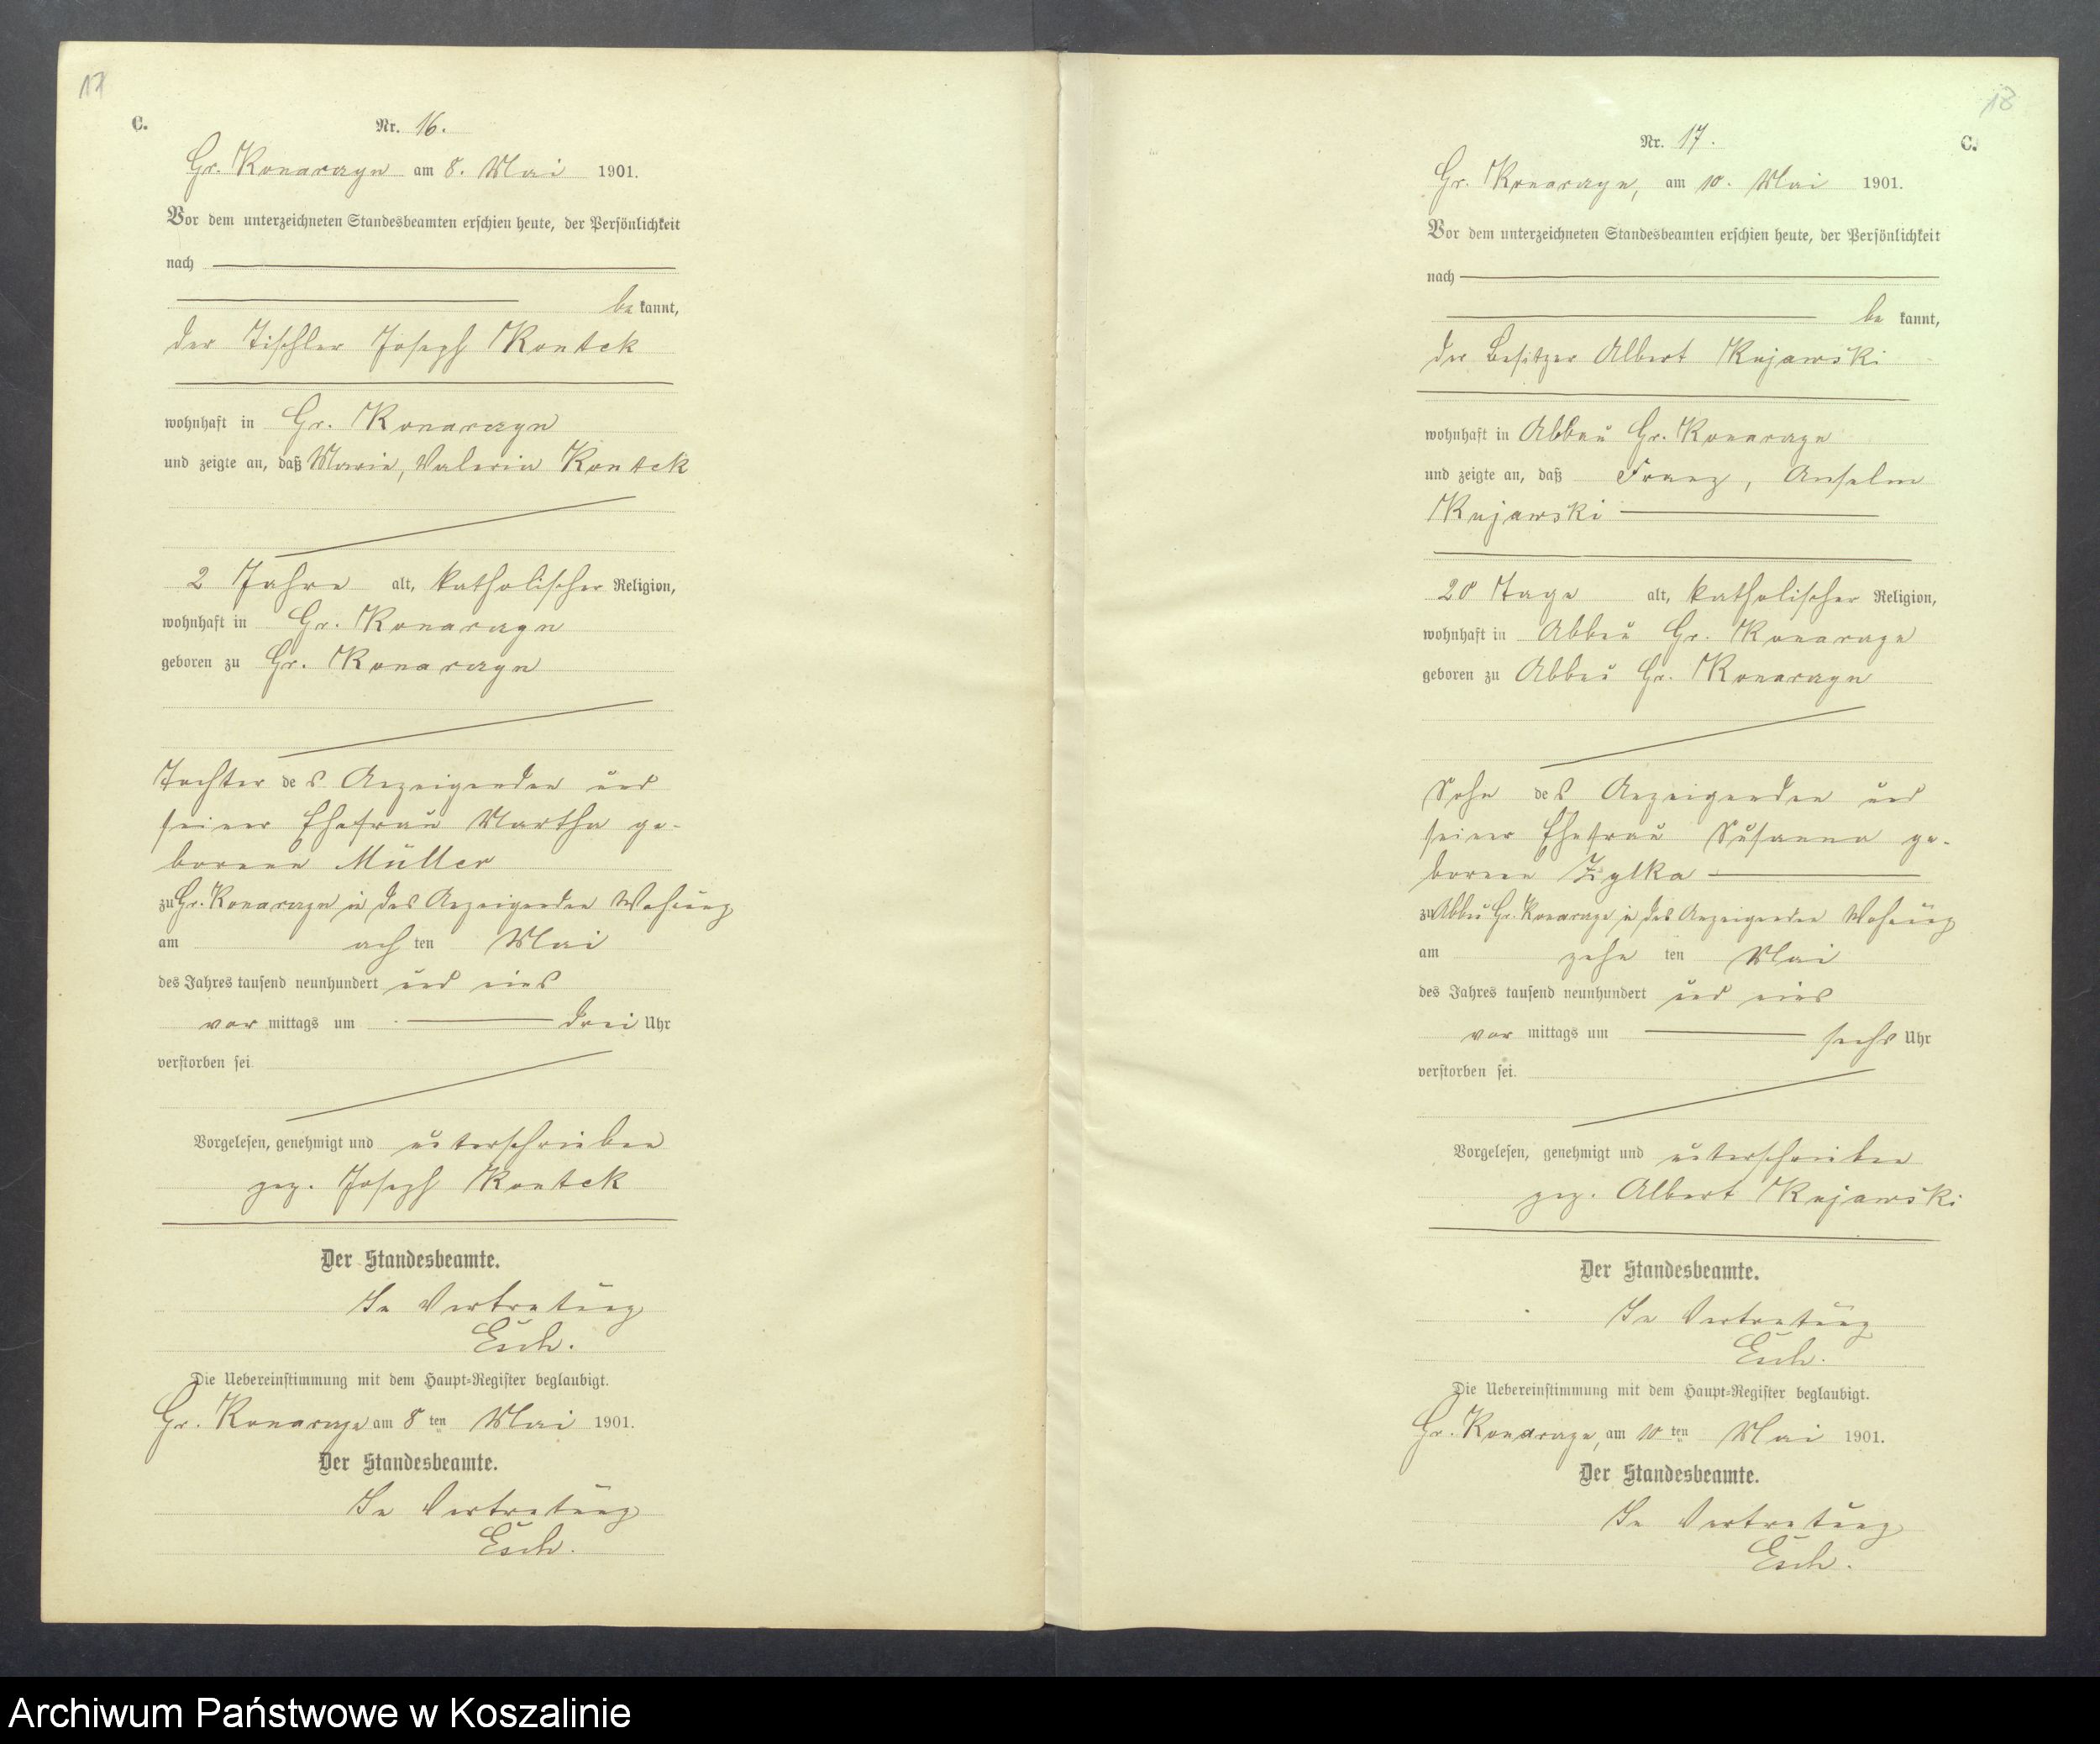 17
C.
Nr. 16.
Gr. Konarczyn am 8. Mai 1901.
Vor dem unterzeichneten Standesbeamten erschien heute, der Persönlichkeit
nach
be kannt,
der Tischler Joseph Kontek
wohnhaft in Gr. Konarczyn
und zeigte an, daß Marie, Valeria Kontek
2 Jahre alt, katholischer Religion,
wohnhaft in Gr. Konarczyn
geboren zu Gr. Konarczyn
Tochter des Anzeigenden und
seiner Ehefrau Martha ge-
borene Müller
zu Gr. Konarczyn in des Anzeigenden Wohnung
am achten Mai
des Jahres tausend neunhundert und eins
vor mittags um drei Uhr
verstorben sei.
Vorgelesen, genehmigt und unterschrieben
gez. Joseph Kontek
Der Standesbeamte.
In Vertretung
Esch.
Die Uebereinstimmung mit dem Haupt-Register beglaubigt.
Gr. Konarczyn am 8 ten Mai 1901.
Der Standesbeamte.
In Vertretung
Esch.
18
Nr. 17.
C.
Gr. Konarczyn, am 10. Mai 1901.
Vor dem unterzeichneten Standesbeamten erschien heute, der Persönlichkeit
nach
be kannt,
der Besitzer Albert Kujawski
wohnhaft in Abbau Gr. Konarczyn
und zeigte an, daß Franz, Anselm
Kujawski
20 Tage alt, katholischer Religion,
wohnhaft in Abbau Gr. Konarczyn
geboren zu Abbau Gr. Konarczyn
Sohn des Anzeigenden und
seiner Ehefrau Susanna ge-
borene Zylka
zu Abbau Gr. Konarczyn in des Anzeigenden Wohnung
am zehnten Mai
des Jahres tausend neunhundert und eins
vor mittags um sechs Uhr
verstorben sei.
Vorgelesen, genehmigt und unterschrieben
gez. Albert Kujawski
Der Standesbeamte.
In Vertretung
Esch.
Die Uebereinstimmung mit dem Haupt-Register beglaubigt.
Gr. Konarczyn, am 10 ten Mai 1901.
Der Standesbeamte.
In Vertretung
Esch.
Archiwum Państwowe w Koszalinie